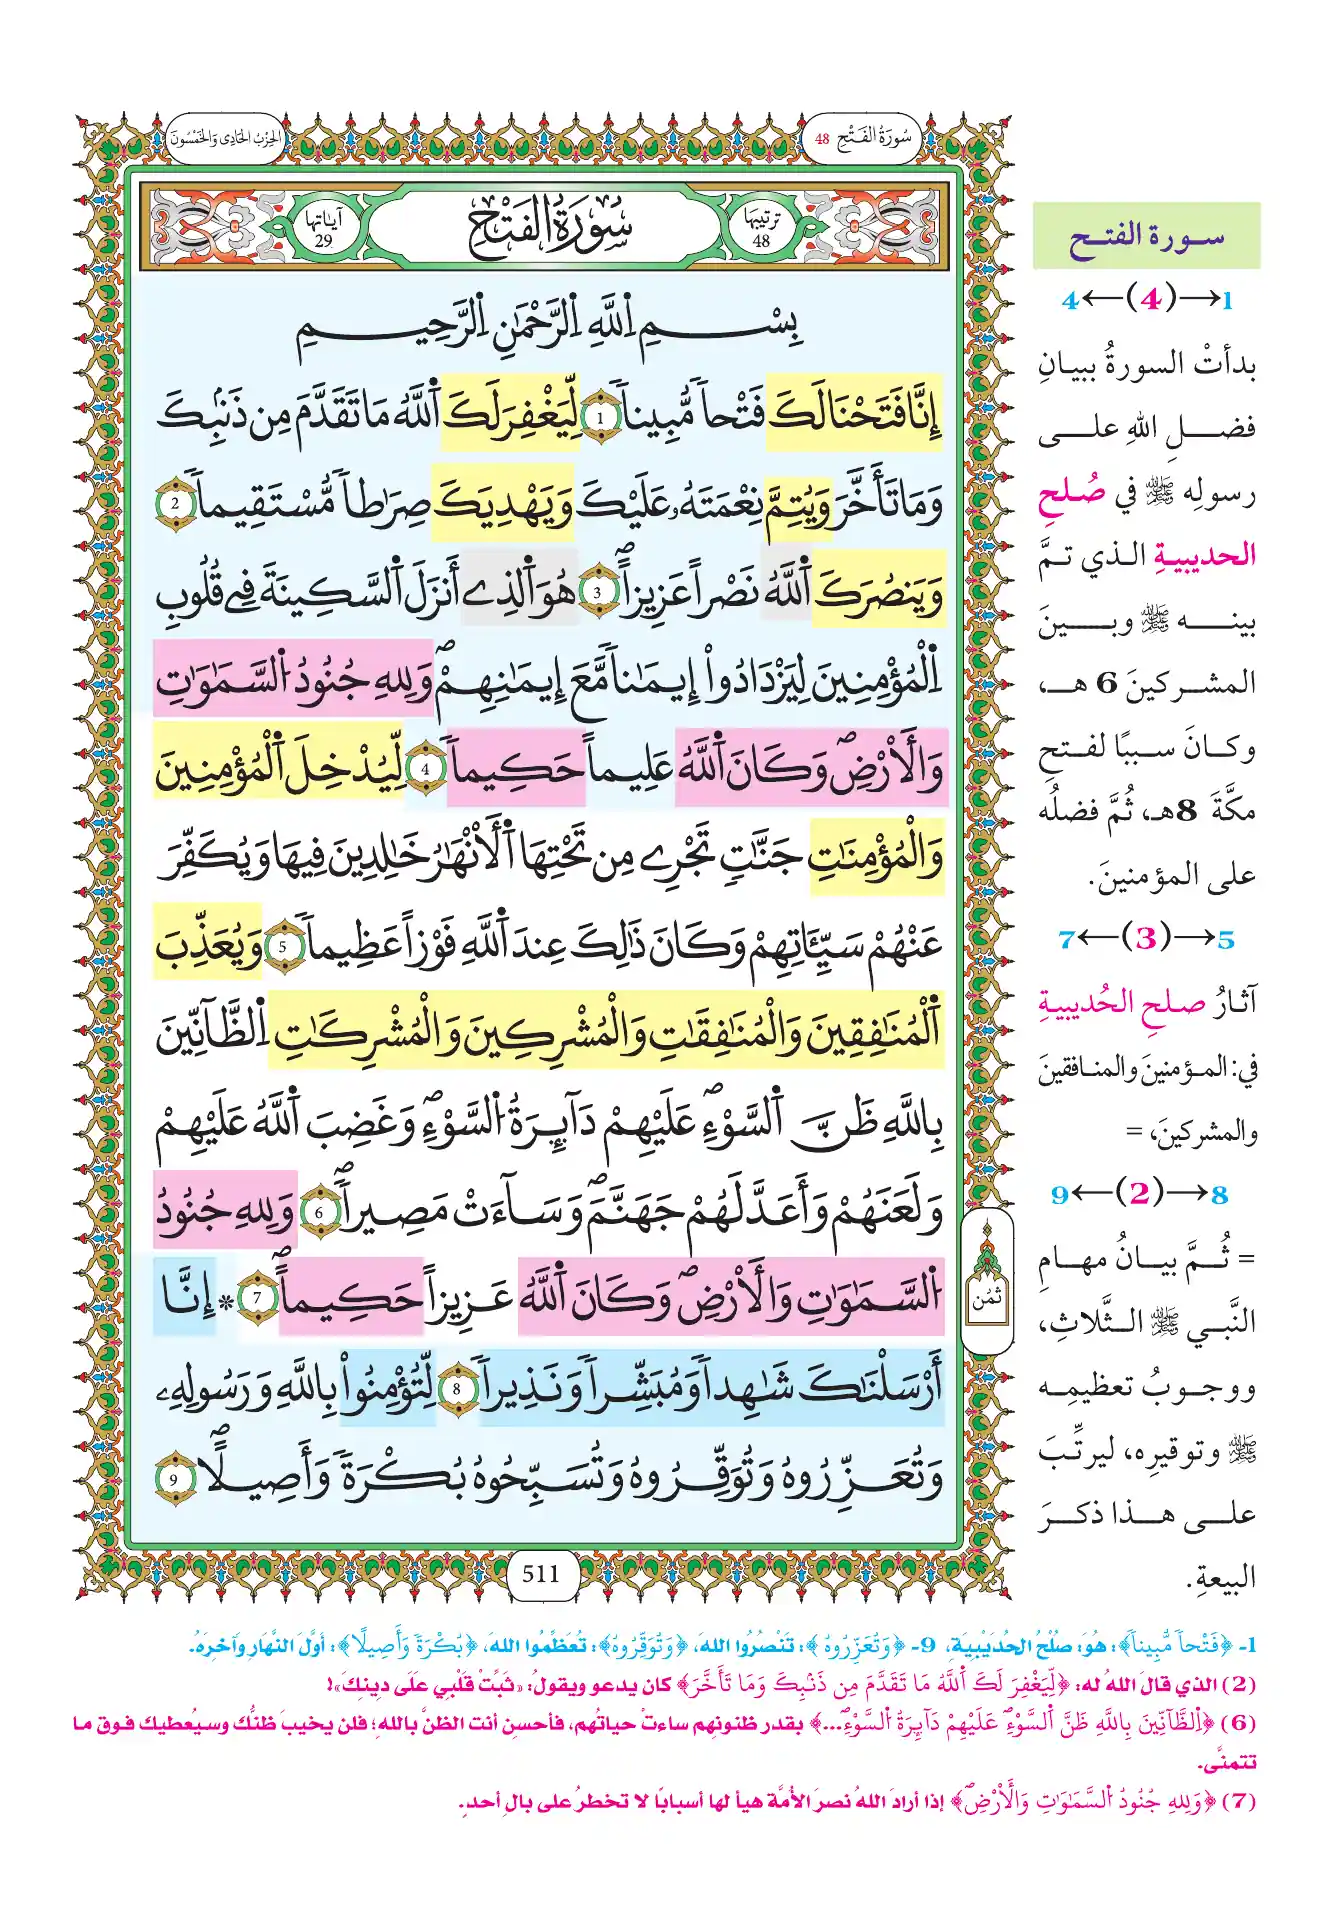 سُورَةُ الفَتْحِ 48
الحِزْبُ الحَادِي وَالخَمْسُونَ
ترتيبها 48
سُورَةُ الفَتْحِ
آياتها 29
بِسْمِ اِ۬للَّهِ اِ۬لرَّحْمَٰنِ اِ۬لرَّحِيمِ
إِنَّا فَتَحْنَا لَكَ فَتْحاٗ مُّبِيناٗ 1 لِّيَغْفِرَ لَكَ اَ۬للَّهُ مَا تَقَدَّمَ مِن ذَنۢبِكَ
وَمَا تَأَخَّرَ وَيُتِمَّ نِعْمَتَهُۥ عَلَيْكَ وَيَهْدِيَكَ صِرَٰطاٗ مُّسْتَقِيماٗ 2
وَيَنصُرَكَ اَ۬للَّهُ نَصْراً عَزِيزاًۖ 3 هُوَ اَ۬لذِےٓ أَنزَلَ اَ۬لسَّكِينَةَ فِے قُلُوبِ
اِ۬لْمُؤْمِنِينَ لِيَزْدَادُوٓاْ إِيمَٰناٗ مَّعَ إِيمَٰنِهِمْۖ وَلِلهِ جُنُودُ اُ۬لسَّمَٰوَٰتِ
وَالْأَرْضِۖ وَكَانَ اَ۬للَّهُ عَلِيماً حَكِيماٗ 4 لِّيُدْخِلَ اَ۬لْمُؤْمِنِينَ
وَالْمُؤْمِنَٰتِ جَنَّٰتٖ تَجْرِے مِن تَحْتِهَا اَ۬لْأَنْهَٰرُ خَٰلِدِينَ فِيهَا وَيُكَفِّرَ
عَنْهُمْ سَيِّـَٔاتِهِمْ وَكَانَ ذَٰلِكَ عِندَ اَ۬للَّهِ فَوْزاً عَظِيماٗ 5 وَيُعَذِّبَ
اَ۬لْمُنَٰفِقِينَ وَالْمُنَٰفِقَٰتِ وَالْمُشْرِكِينَ وَالْمُشْرِكَٰتِ اِ۬لظَّآنِّينَ
بِاللَّهِ ظَنَّ اَ۬لسَّوْءِۖ عَلَيْهِمْ دَآئِرَةُ اُ۬لسَّوْءِۖ وَغَضِبَ اَ۬للَّهُ عَلَيْهِمْ
وَلَعَنَهُمْ وَأَعَدَّ لَهُمْ جَهَنَّمَۖ وَسَآءَتْ مَصِيراًۖ 6 وَلِلهِ جُنُودُ
اُ۬لسَّمَٰوَٰتِ وَالْأَرْضِۖ وَكَانَ اَ۬للَّهُ عَزِيزاً حَكِيماًۖ 7 * إِنَّآ
ثُمُن
أَرْسَلْنَٰكَ شَٰهِداٗ وَمُبَشِّراٗ وَنَذِيراٗ 8 لِّتُؤْمِنُواْ بِاللَّهِ وَرَسُولِهِۦ
وَتُعَزِّرُوهُ وَتُوَقِّرُوهُ وَتُسَبِّحُوهُ بُكْرَةٗ وَأَصِيلًاۖ 9
511
سورة الفتح
1→(4)←4
بدأتْ السورةُ ببيانِ
فضلِ اللهِ على
رسولِه ﷺ في صُلحِ
الحديبيةِ الذي تمَّ
بينه ﷺ وبينَ
المشركينَ 6 هـ،
وكانَ سببًا لفتحِ
مكَّةَ 8هـ، ثُمَّ فضلُه
على المؤمنينَ.
5→(3)←7
آثارُ صلحِ الحُديبيةِ
في: المؤمنينَ والمنافقينَ
والمشركينَ، =
8→(2)←9
= ثُمَّ بيانُ مهامِ
النَّبي ﷺ الثَّلاثِ،
ووجوبُ تعظيمِه
ﷺ وتوقيرِه، ليرتِّبَ
على هذا ذكرَ
البيعةِ.
1- ﴿فَتْحاٗ مُّبِيناٗ﴾: هُوَ: صُلْحُ الحُدَيْبِيَةِ، 9- ﴿وَتُعَزِّرُوهُ﴾: تَنْصُرُوا اللهَ، ﴿وَتُوَقِّرُوهُ﴾: تُعَظِّمُوا اللهَ، ﴿بُكْرَةٗ وَأَصِيلًا﴾: أوَّلَ النَّهَارِ وَآخِرَهُ.
(2) الذي قالَ اللهُ له: ﴿لِّيَغْفِرَ لَكَ اَ۬للَّهُ مَا تَقَدَّمَ مِن ذَنۢبِكَ وَمَا تَأَخَّرَ﴾ كان يدعو ويقولُ: «ثَبِّتْ قَلْبِي عَلَى دِينِكَ»!
(6) ﴿اِ۬لظَّآنِّينَ بِاللَّهِ ظَنَّ اَ۬لسَّوْءِۖ عَلَيْهِمْ دَآئِرَةُ اُ۬لسَّوْءِۖ...﴾ بقدر ظنونهم ساءتْ حياتُهم، فأحسِن أنت الظنَّ بالله؛ فلن يخيبَ ظنُّك وسيُعطيك فوق ما
تتمنَّى.
(7) ﴿وَلِلهِ جُنُودُ اُ۬لسَّمَٰوَٰتِ وَالْأَرْضِۖ﴾ إذا أرادَ اللهُ نصرَ الأمَّة هيأ لها أسبابًا لا تخطرُ على بالِ أحدٍ.